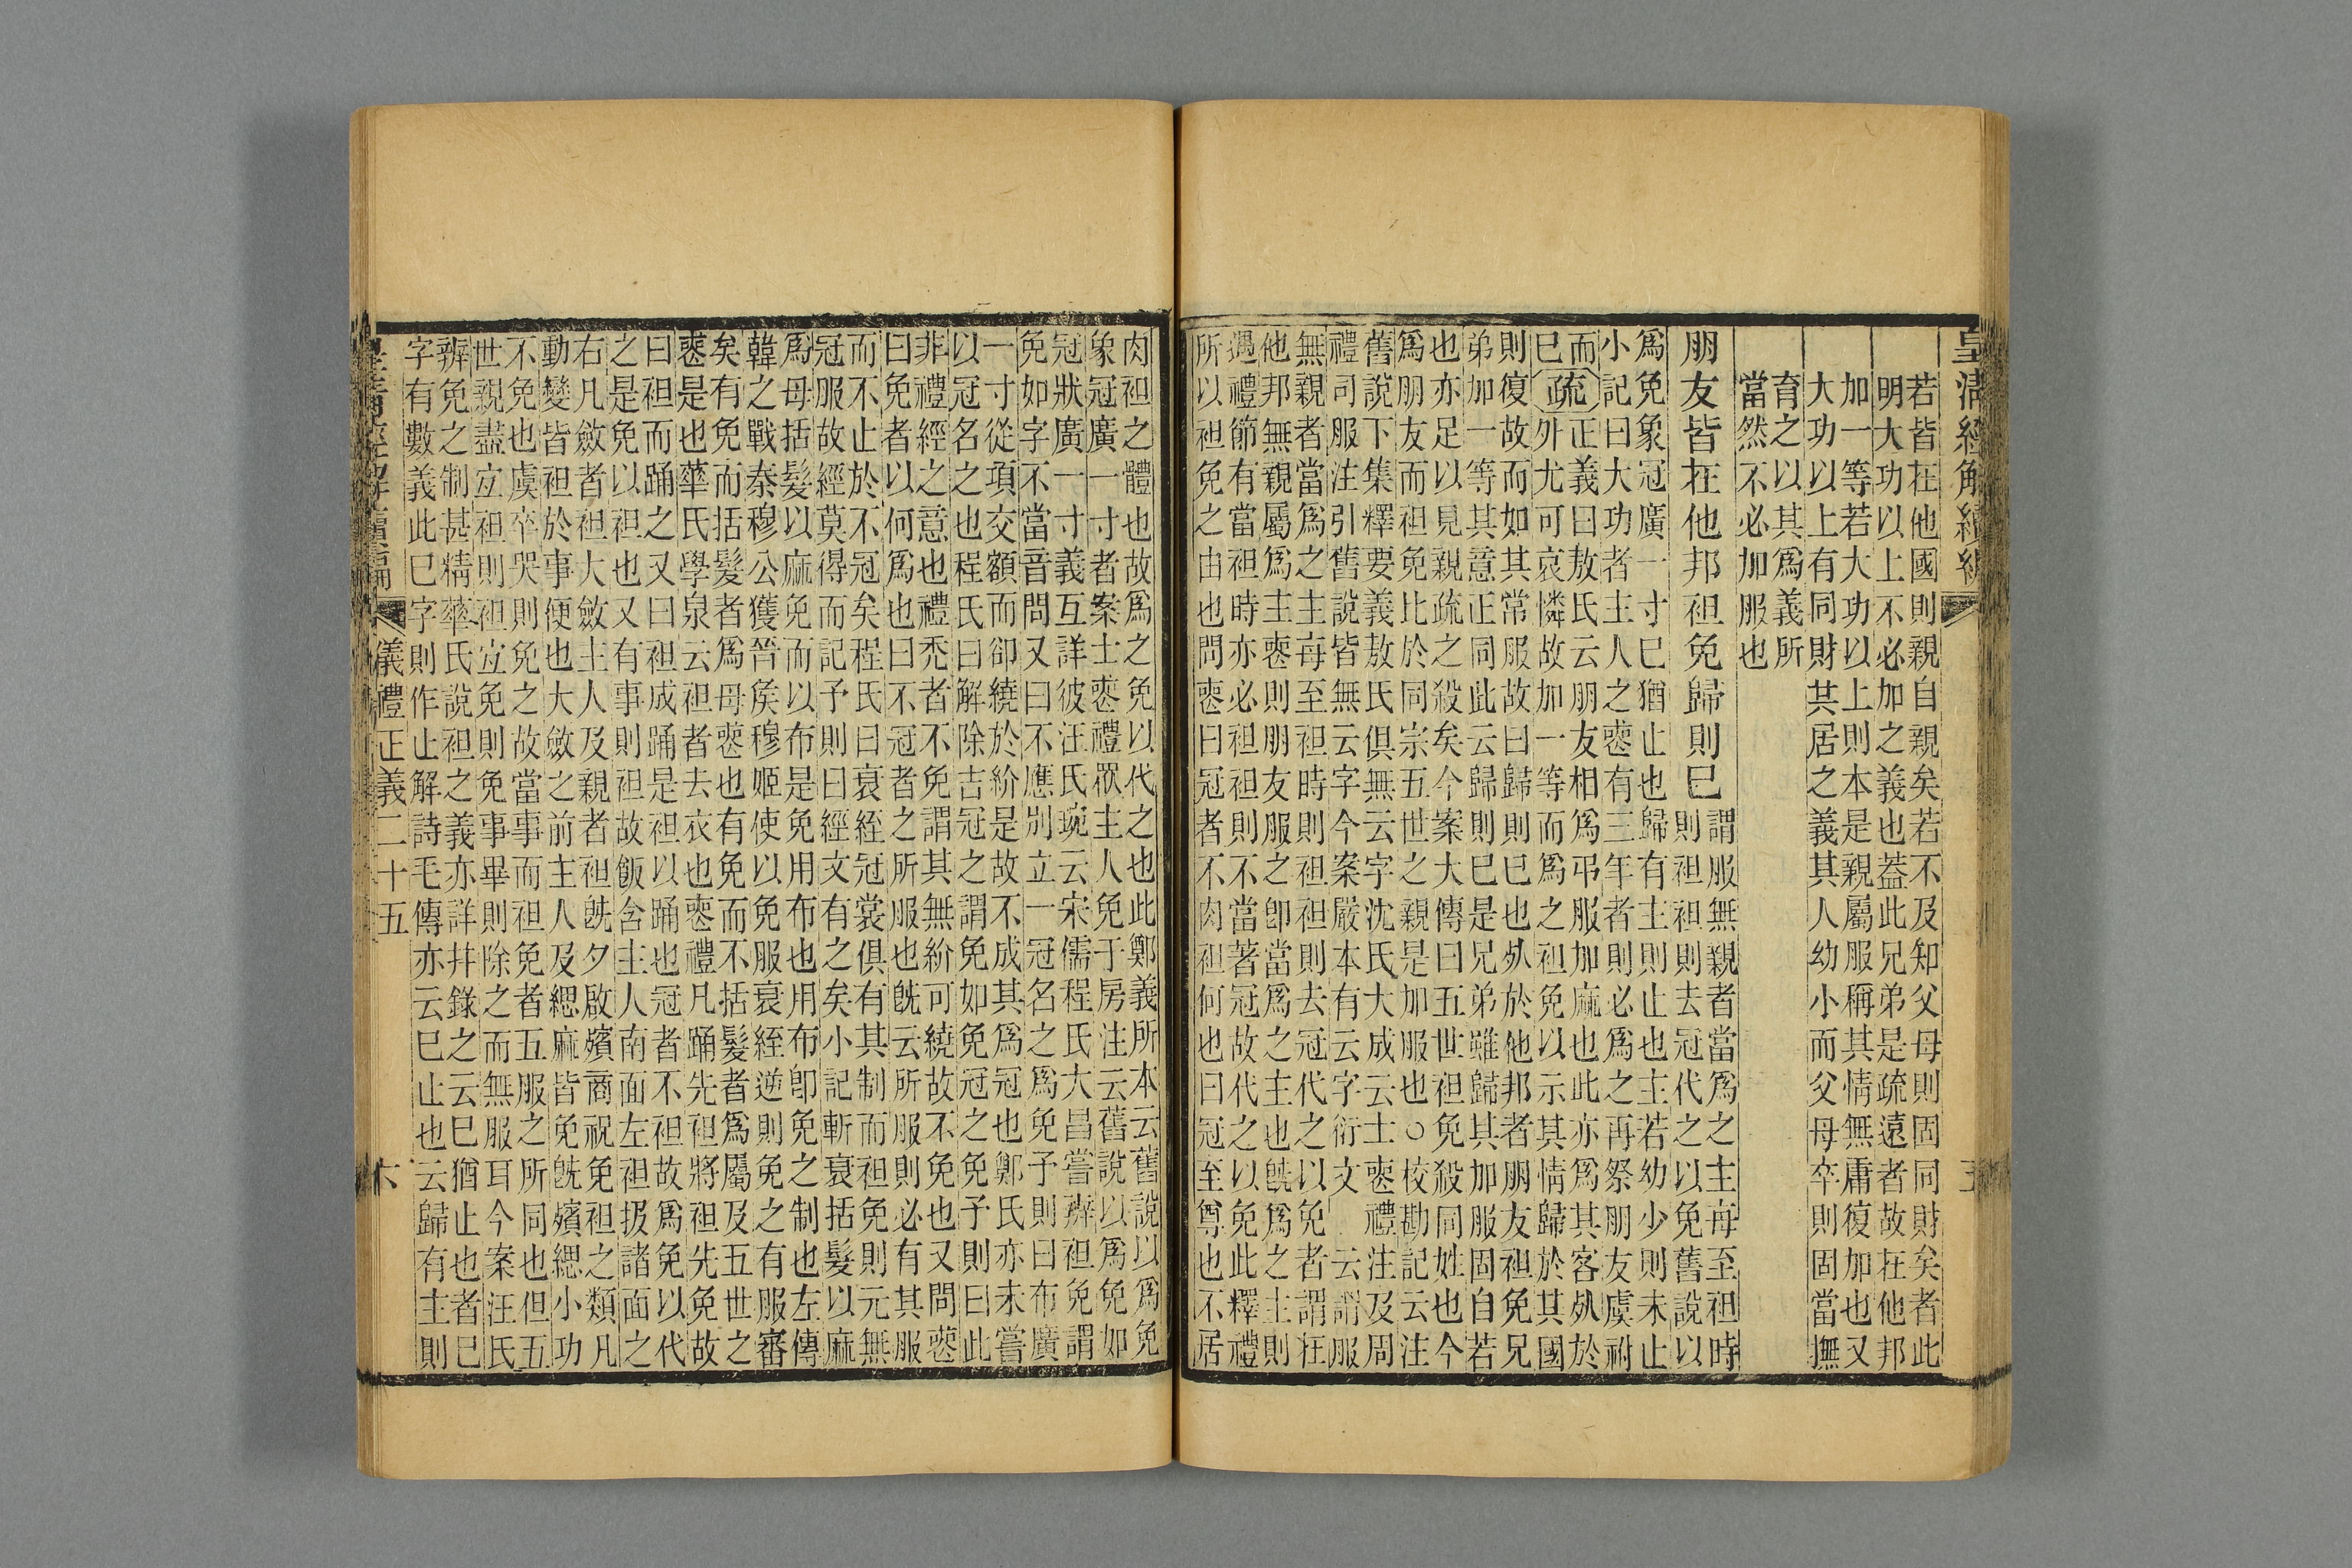 皇清經解續編
若皆在他國則親自親矣若不及知父母則固同財矣者此
明大功以上不必加之義也蓋此兄弟是疏遠者故在他邦
加一等若大功以上則本是親屬服稱其情無庸復加也又
大功以上有同財其居之義其人幼小而父母卒則固當撫
育之以其爲義所
當然不必加服也
朋友皆在他邦袒免歸則已
謂服無親者當爲之主每至袒時
則袒袒則去冠代之以免舊說以
爲免象冠廣一寸已猶止也歸有主則止也主若幼少則未止
小記曰大功者主人之喪有三年者則必爲之再祭朋友虞祔
而正義曰敖氏云朋友相爲弔服加麻也此亦爲其客死於
已疏外尤可哀憐故加一等而爲之袒免以示其情歸於其國
則復故而如其常服故曰歸則已也死於他邦者朋友袒免兄
弟加一等其意正同此云歸則已是兄弟雖歸其加服固自若
也亦足以見親疏之殺矣今案大傳曰五世袒免殺同姓也今
爲朋友而袒免比於同宗五世之親是加服也○校勘記云注
舊說下集釋要義敖氏俱無云字沈氏大成云士喪禮注及周
禮司服注引舊說皆無云字今案嚴本有云字衍文 云謂服
無親者當爲之主每至袒時則袒袒則去冠代之以免者謂在
他邦無親屬爲主喪則朋友服之卽當爲之主也旣爲之主則
遇禮節有當袒時亦必袒袒則不當著冠故代之以免此釋禮
所以袒免之由也問喪曰冠者不肉袒何也曰冠至尊也不居
肉袒之體也故爲之免以代之也此鄭義所本云舊說以爲免
象冠廣一寸者案士喪禮眾主人免于房注云舊說以爲免如
冠狀廣一寸義互詳彼汪氏琬云宋儒程氏大昌嘗辨袒免謂
免如字不當音問又曰不應別立一冠名之爲免予則曰布廣
一寸從項交額而卻繞於紒是故不成其爲冠也鄭氏亦未嘗
以冠名之也程氏曰解除吉冠之謂免如免冠之免予則曰此
非禮經之意也禮禿者不免謂其無紒可繞故不免也又問喪
曰免者以何爲也曰不冠者之所服也旣云所服則必有其服
而不止於不冠矣程氏曰衰絰冠裳俱有其制而袒免則元無
冠服故經莫得而記予則曰經文有之矣小記斬衰括髮以麻
爲母括髮以麻免而以布是免用布也用布卽免之制也左傳
韓之戰秦穆公獲晉矦穆姬使以免服衰絰逆則免之有服審
矣有免而括髮者爲母喪也有免而不括髮者爲屬及五世之
喪是也華氏學泉云袒者去衣也喪禮凡踊先袒將袒先免故
曰袒而踊之又曰袒成踊是袒以踊也冠者不袒故爲免以代
之是免以袒也又有事則袒故飯含主人南面左袒扱諸面之
右凡斂者袒大斂主人及親者袒旣夕啟殯商祝免袒之類凡
動變皆袒於事便也大斂之前主人及緦麻皆免旣殯緦小功
不免也虞卒哭則免之故當事而袒免者五服之所同也但五
世親盡宜袒則袒宜免則免事畢則除之而無服耳今案汪氏
辨免之制甚精華氏說袒之義亦詳幷錄之云已猶止也者已
字有數義此已字則作止解詩毛傳亦云已止也云歸有主則
皇清經解續編 儀禮正義二十五 六